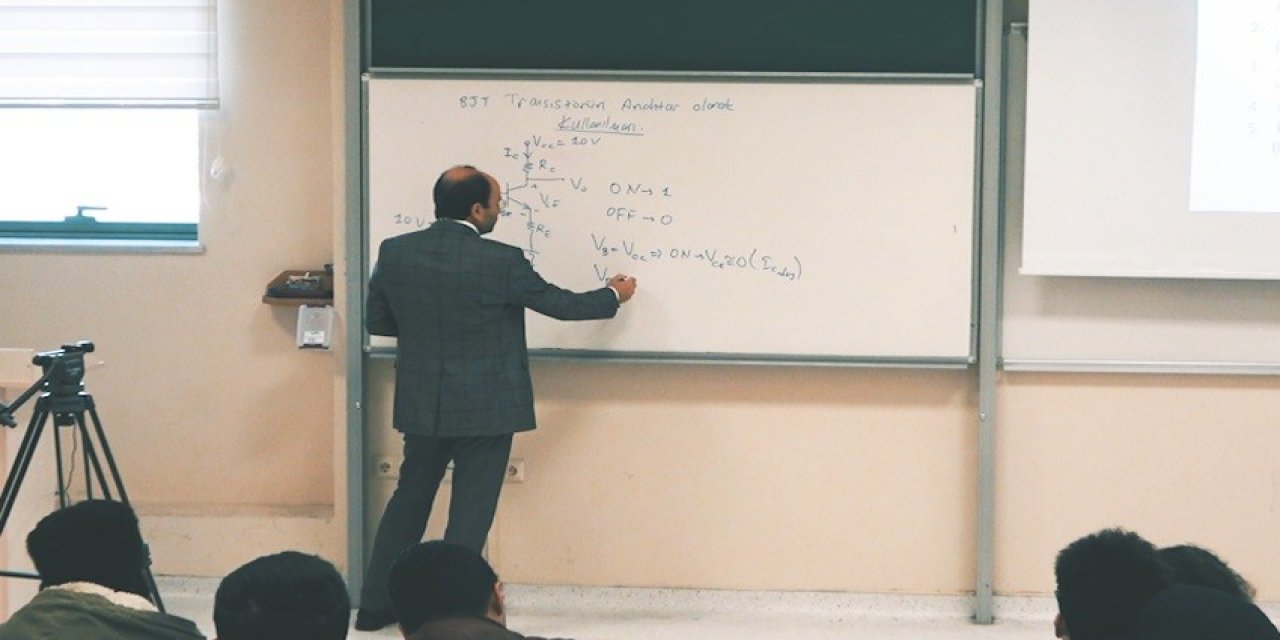 BJT Transistörün Anahtar olarak
Kullanılması.
Vcc = 10V
Ic
Rc
Vo
ON → 1
OFF → 0
10V
RE
VB = Vcc ⇒ ON → VCE ≅ 0 (Ic
V
2.
3.
4.
5.